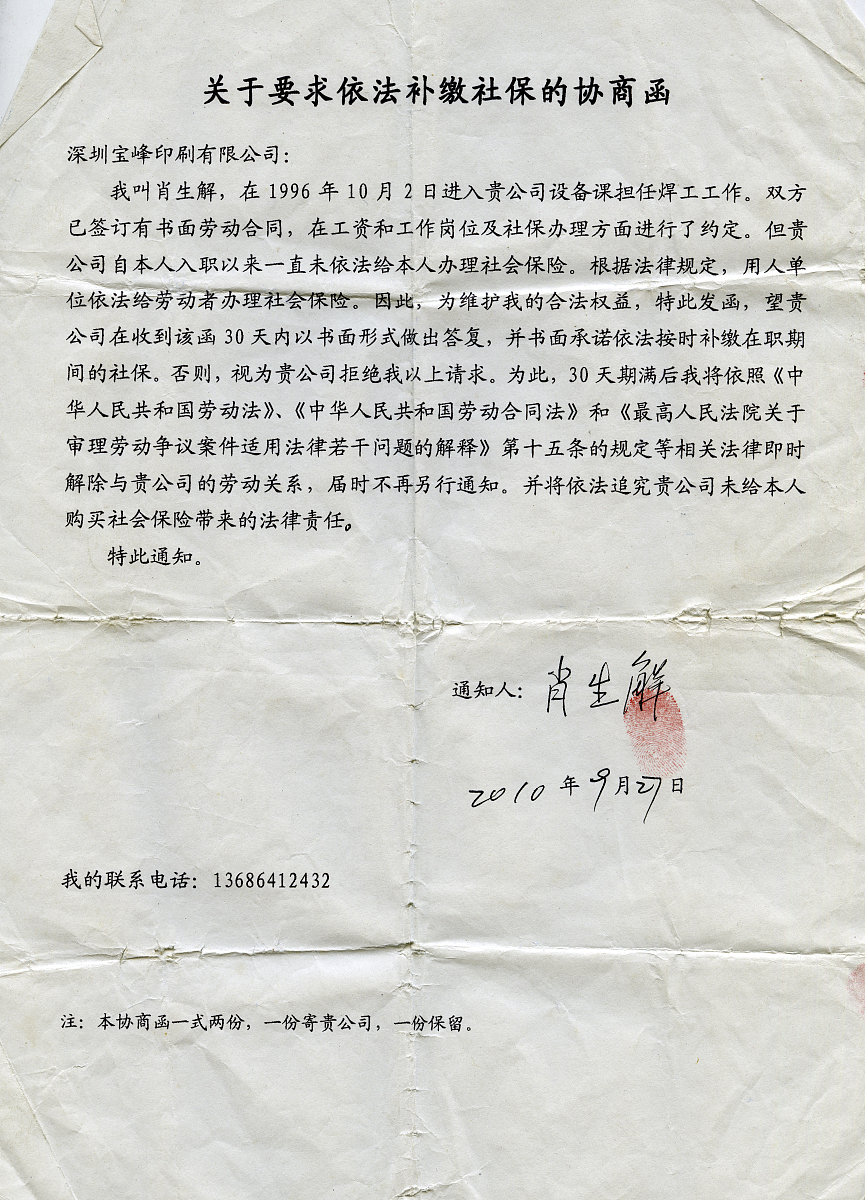 关于要求依法补缴社保的协商函
深圳宝峰印刷有限公司：
我叫肖生解，在 1996 年 10 月 2 日进入贵公司设备课担任焊工工作。双方
已签订有书面劳动合同，在工资和工作岗位及社保办理方面进行了约定。但贵
公司自本人入职以来一直未依法给本人办理社会保险。根据法律规定，用人单
位依法给劳动者办理社会保险。因此，为维护我的合法权益，特此发函，望贵
公司在收到该函 30 天内以书面形式做出答复，并书面承诺依法按时补缴在职期
间的社保。否则，视为贵公司拒绝我以上请求。为此，30 天期满后我将依照《中
华人民共和国劳动法》、《中华人民共和国劳动合同法》和《最高人民法院关于
审理劳动争议案件适用法律若干问题的解释》第十五条的规定等相关法律即时
解除与贵公司的劳动关系，届时不再另行通知。并将依法追究贵公司未给本人
购买社会保险带来的法律责任。
特此通知。
通知人：肖生解
2010 年 9 月 27 日
我的联系电话：13686412432
注：本协商函一式两份，一份寄贵公司，一份保留。